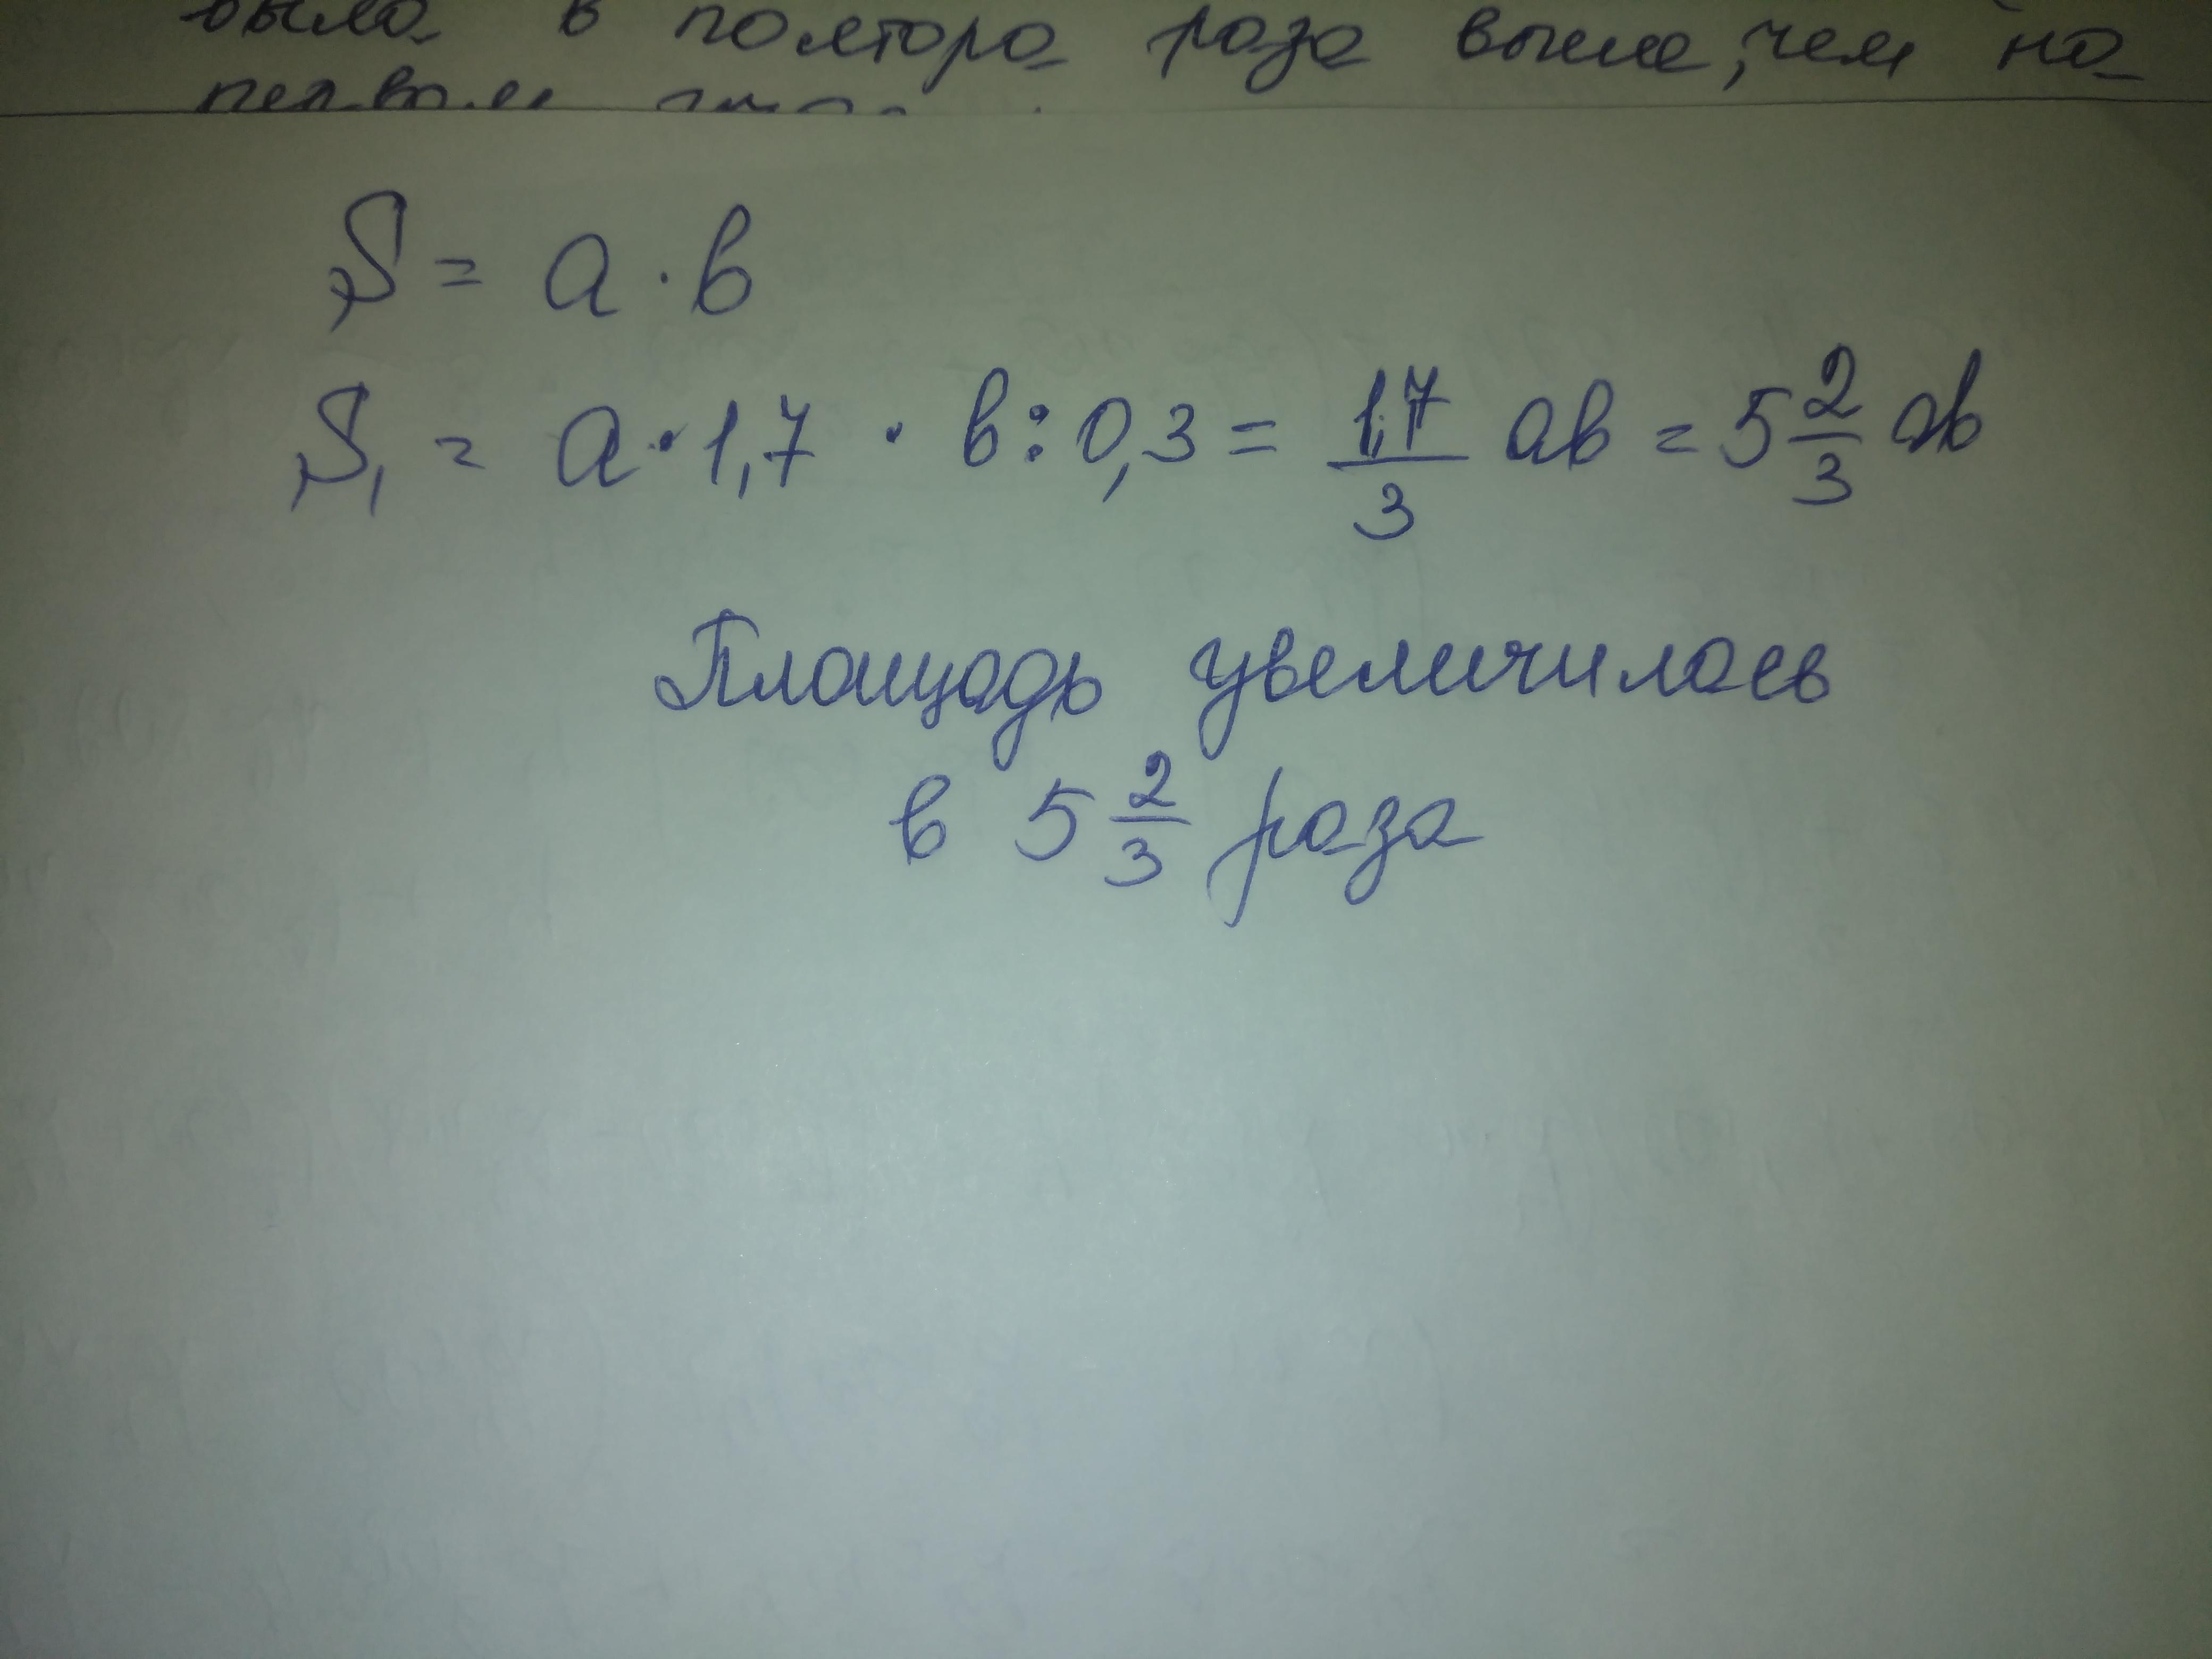 было в полтора раза выше, чем на
первом
S = a · b
S₁ = a · 1,7 · b : 0,3 = 17/3 ab = 5 2/3 ab
Площадь увеличилась
в 5 2/3 раза